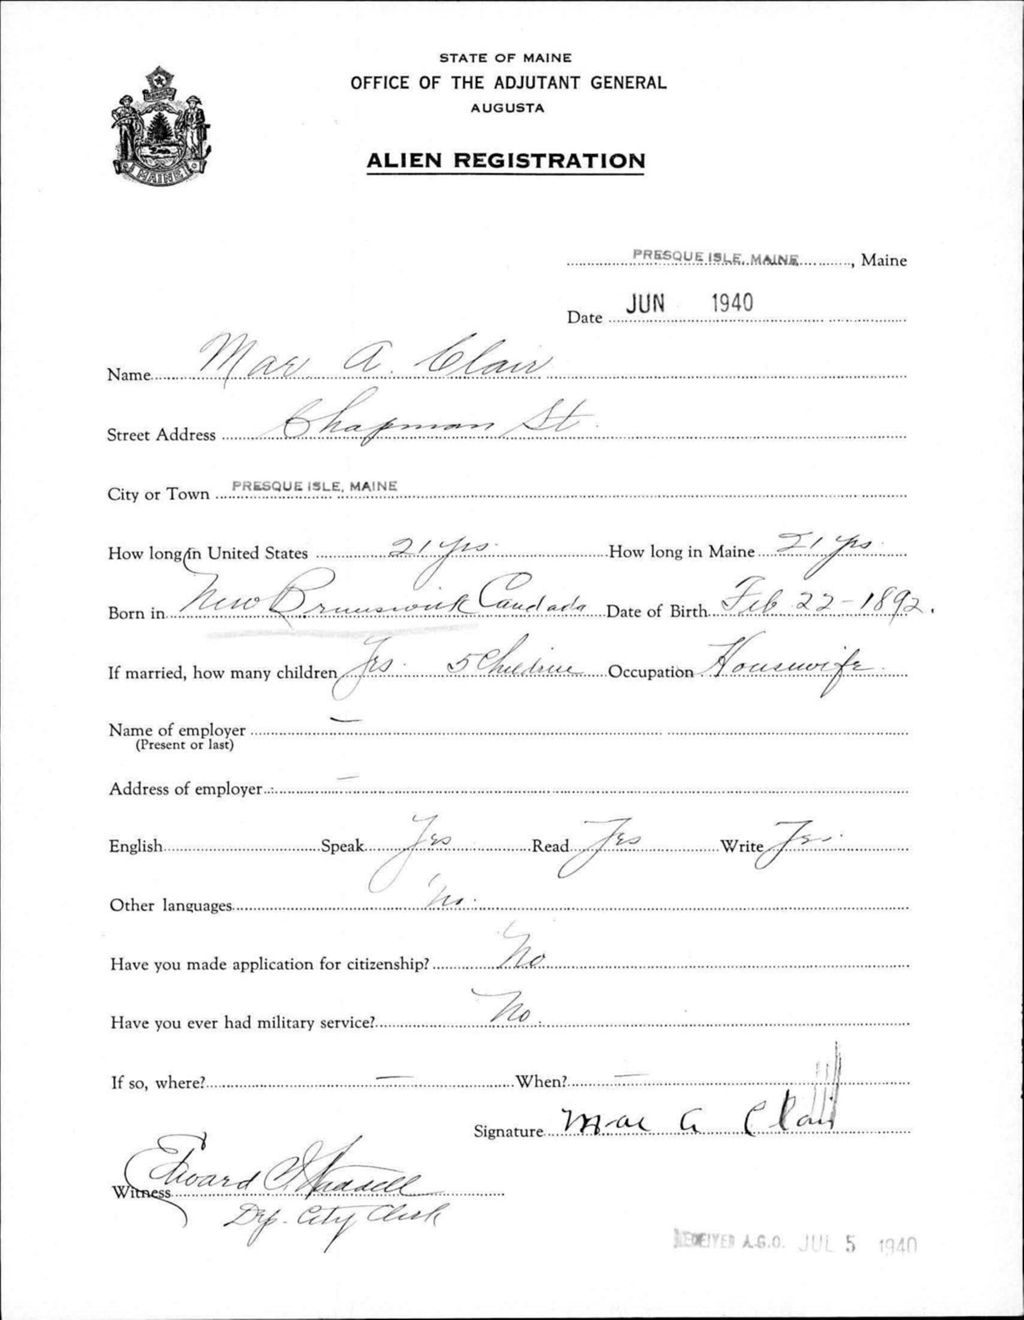 STATE OF MAINE
OFFICE OF THE ADJUTANT GENERAL
AUGUSTA
ALIEN REGISTRATION
MAINE
PRESQUE ISLE, MAINE, Maine
Date JUN 1940
Name Mae A. Clair
Street Address Chapman St.
City or Town PRESQUE ISLE, MAINE
How long in United States 21 yrs. How long in Maine 21 yrs.
Born in New Brunswick Canada Date of Birth Feb 22-1892.
If married, how many children Yes. 5 Children Occupation Housewife.
Name of employer —
(Present or last)
Address of employer —
English Speak Yes Read Yes Write Yes.
Other languages No.
Have you made application for citizenship? No
Have you ever had military service? No.
If so, where? — When? —
Signature Mae A Clair
Witness Edward
Dep. City Clerk
RECEIVED A.G.O. JUL 5 1940